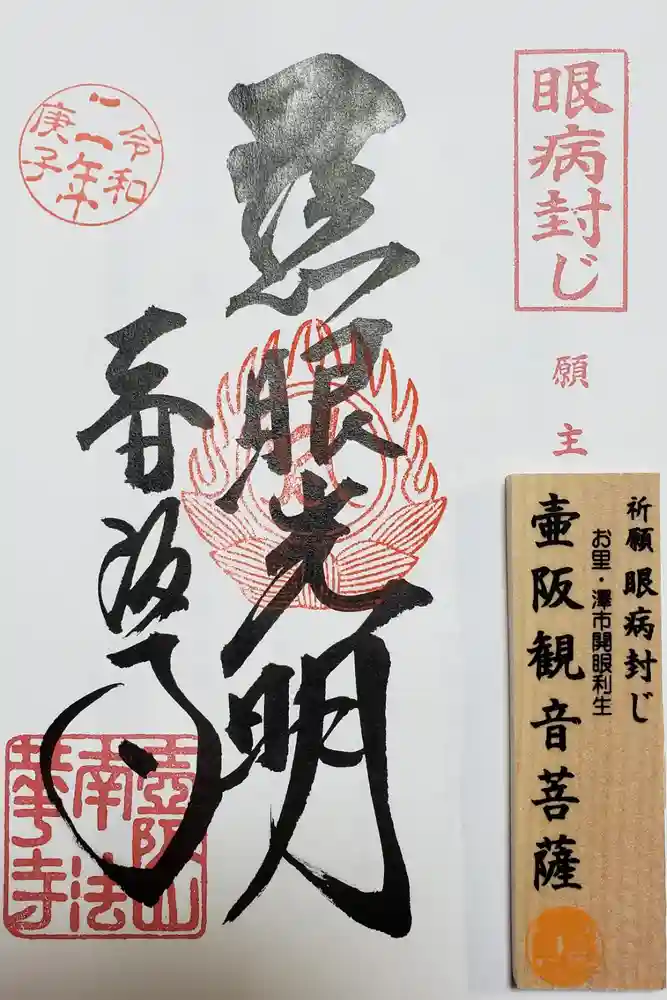 眼病封じ
願主
祈願 眼病封じ
お里・澤市開眼利生
壷阪観音菩薩
眼光明
壷阪山
南法
華寺
令和
二年
庚子